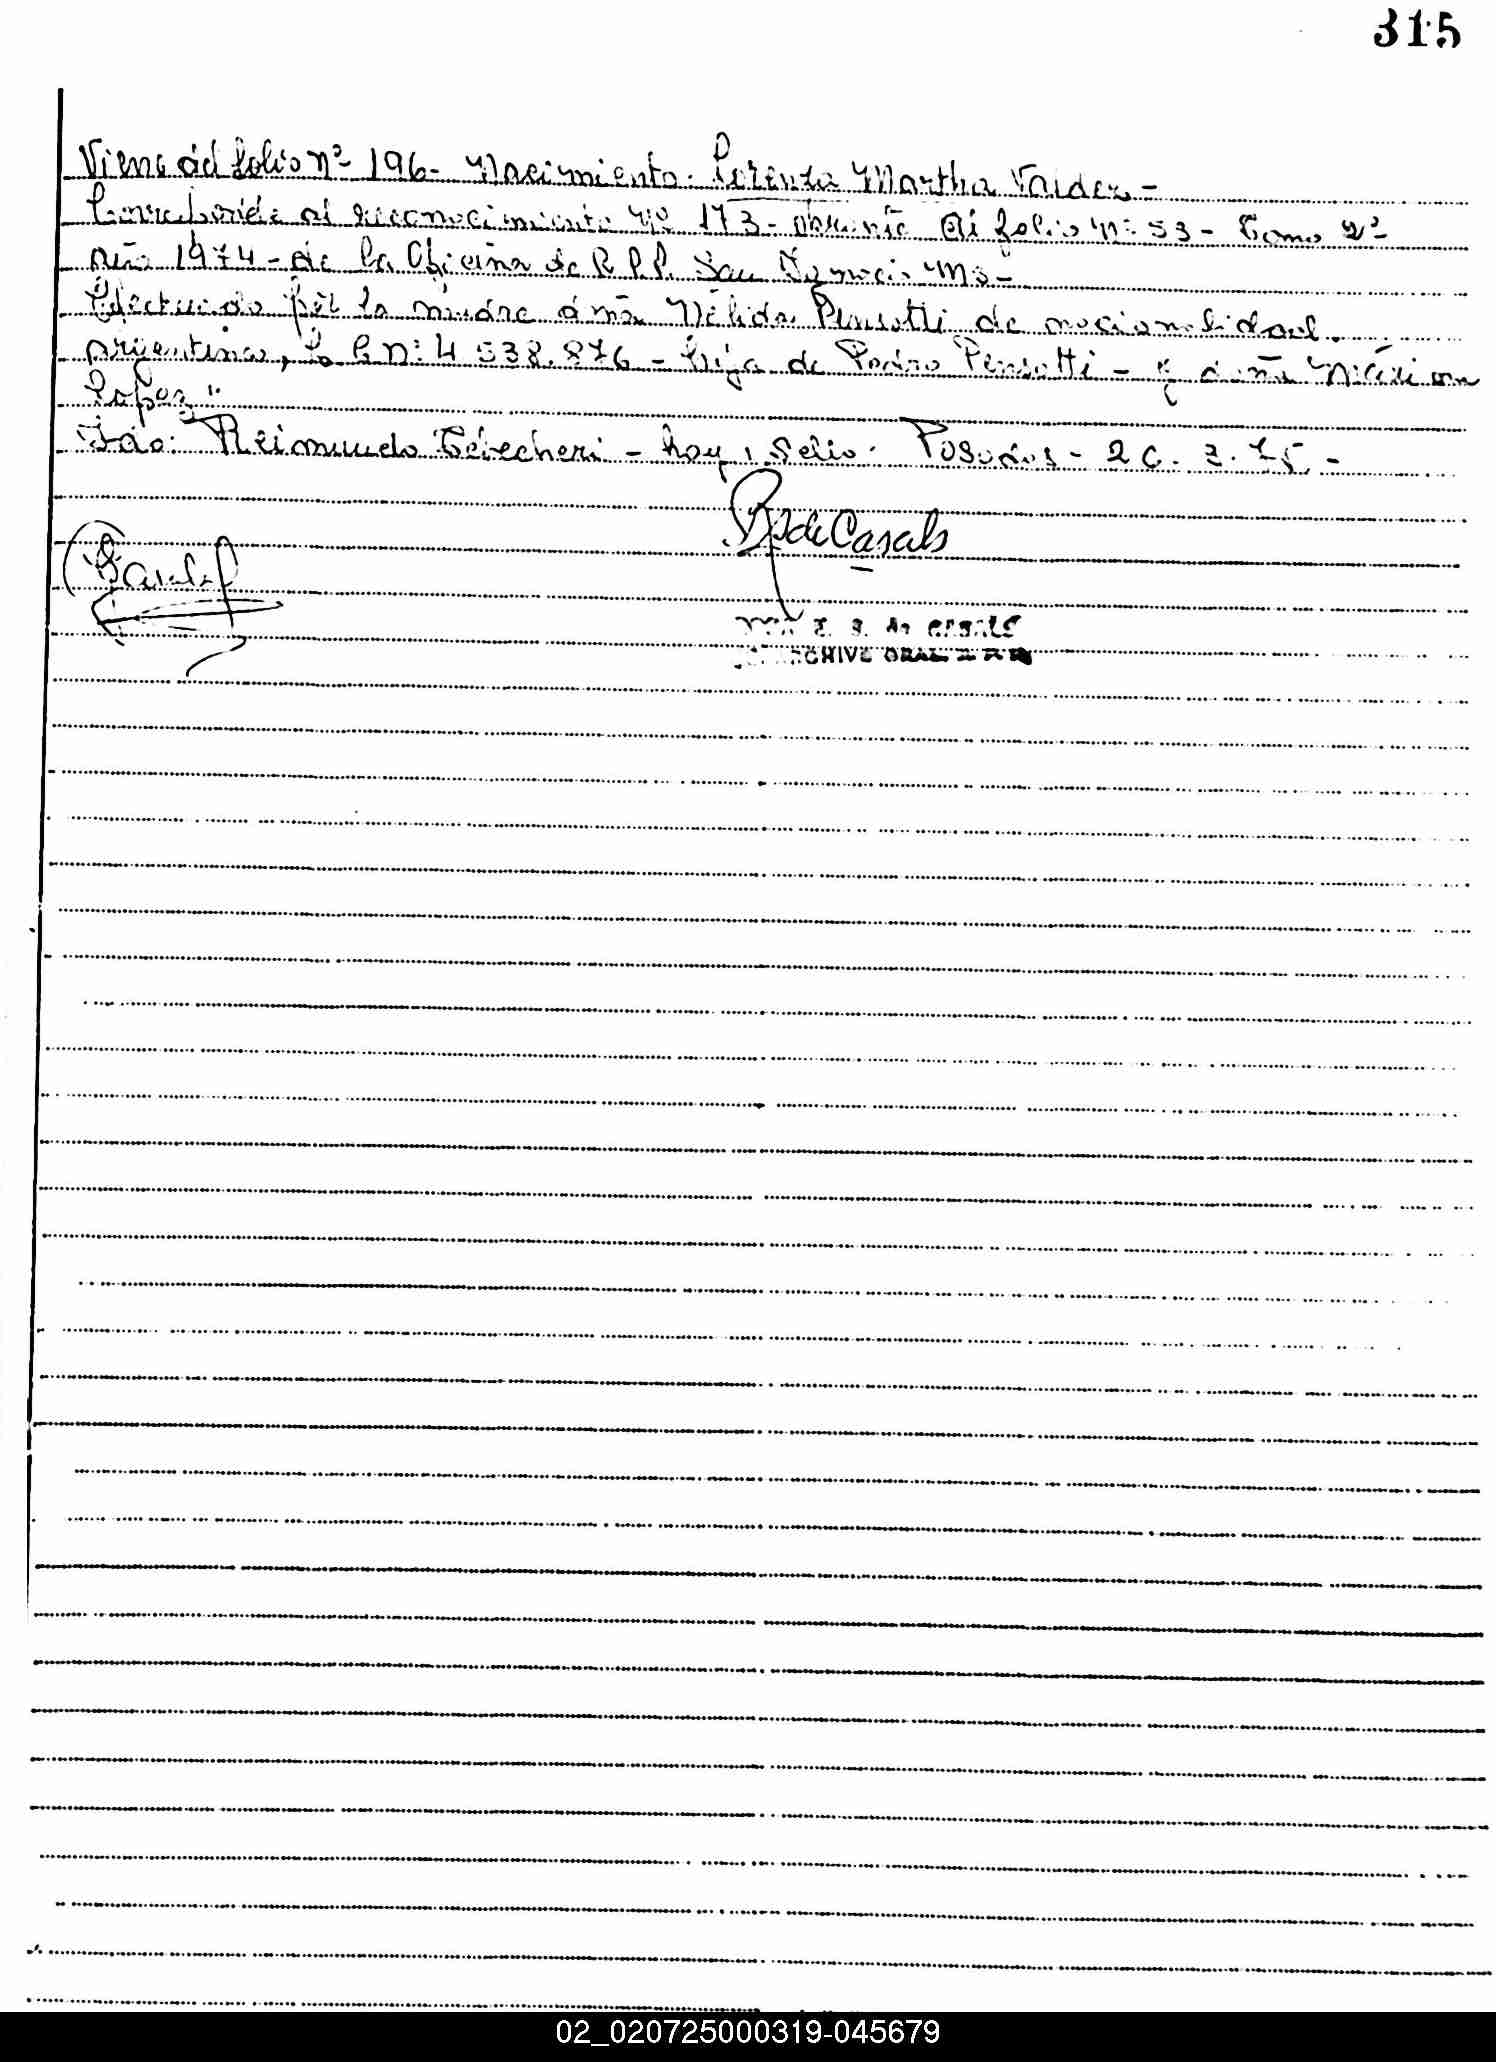 315
Viene del folio Nº 196- Nacimiento. Lorenza Martha Valdez -
Corresponde al reconocimiento Nº 173- obrante al folio Nº 53 - Tomo 2º
Año 1974 - de la Oficina de R.P.P. San Ignacio Ms -
Efectuado por la madre doña Nélida Pensotti de nacionalidad
argentina, L C Nº 4 538.876 - hija de Pedro Pensotti - y doña
Lopez".
Fdo: Reimundo - hay 1 sello. Posadas - 26. 3. 75 -
de Casals
de Casals
ARCHIVO GRAL
02_020725000319-045679